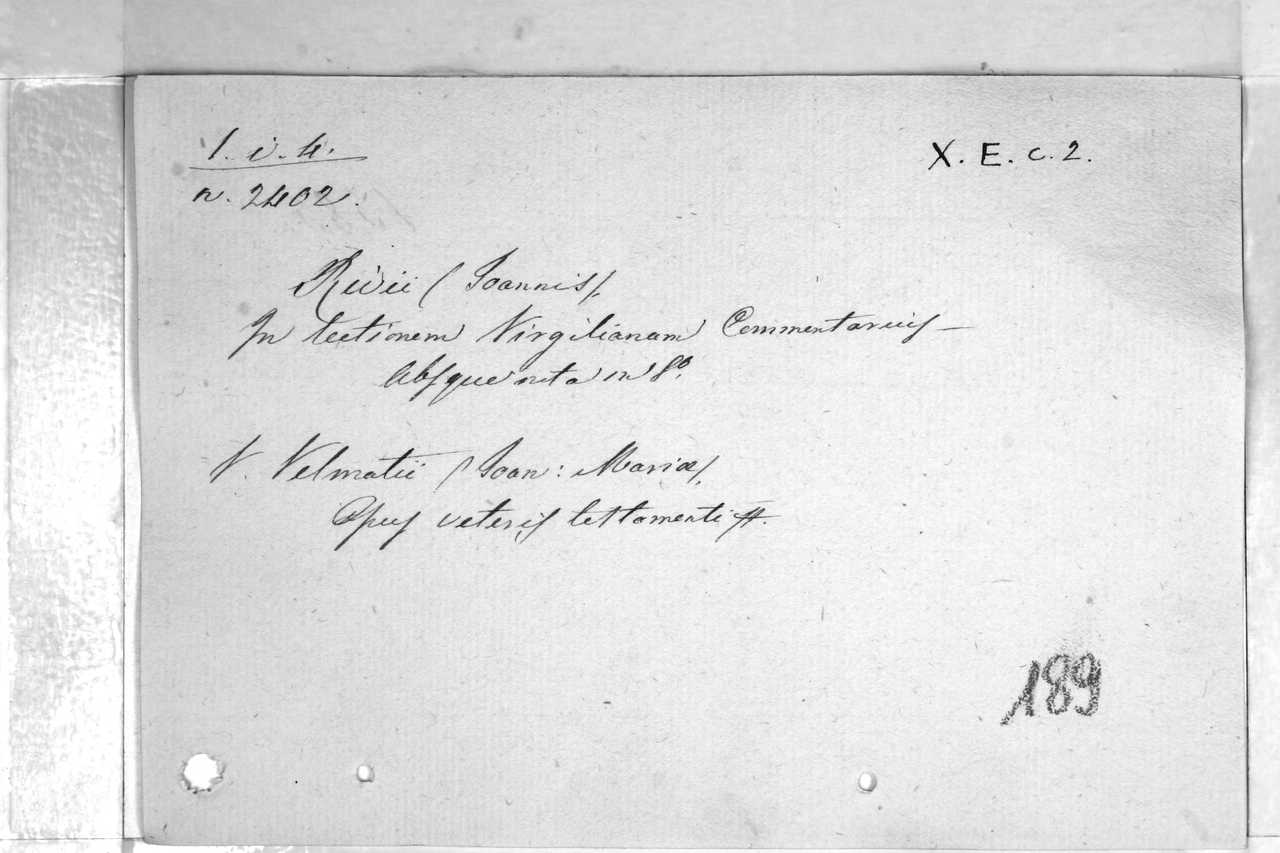 1. i. 4.
X. E. c. 2.
n. 2402.
Rivii / Joannis /.
In lectionem Virgilianam Commentariis –
Absque nota in 8º.
V. Velmatii / Joan: Mariæ /.
Opus veteris testamenti
189